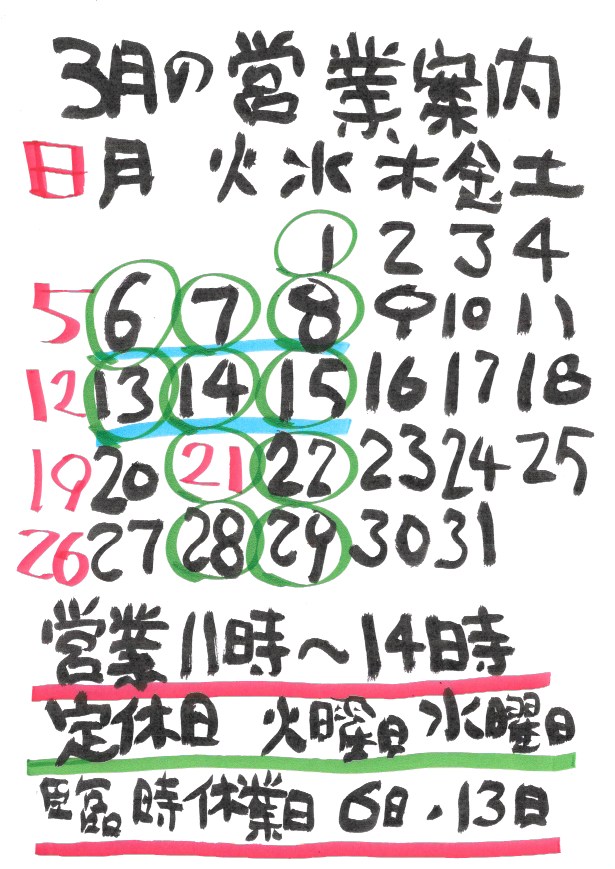 3月の営業案内
日 月 火 水 木 金 土
1 2 3 4
5 6 7 8 9 10 11
12 13 14 15 16 17 18
19 20 21 22 23 24 25
26 27 28 29 30 31
営業11時〜14時
定休日 火曜日 水曜日
臨時休業日 6日・13日